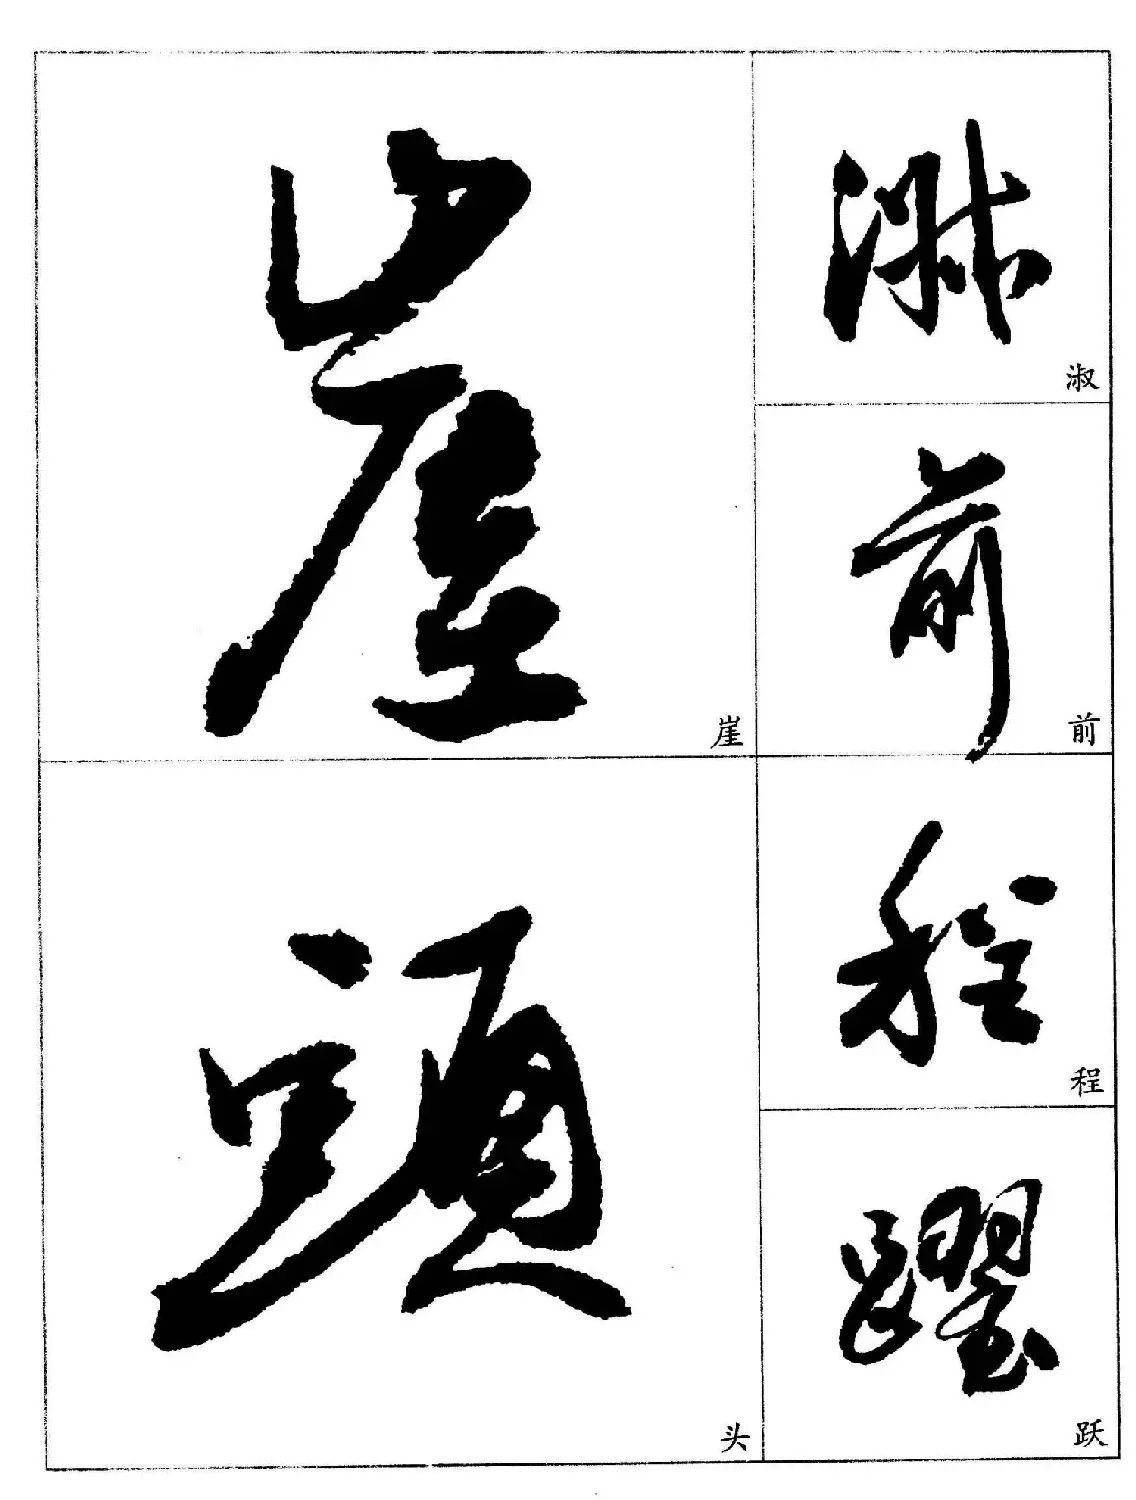 崖
崖
頭
头
淑
淑
前
前
程
程
躍
跃